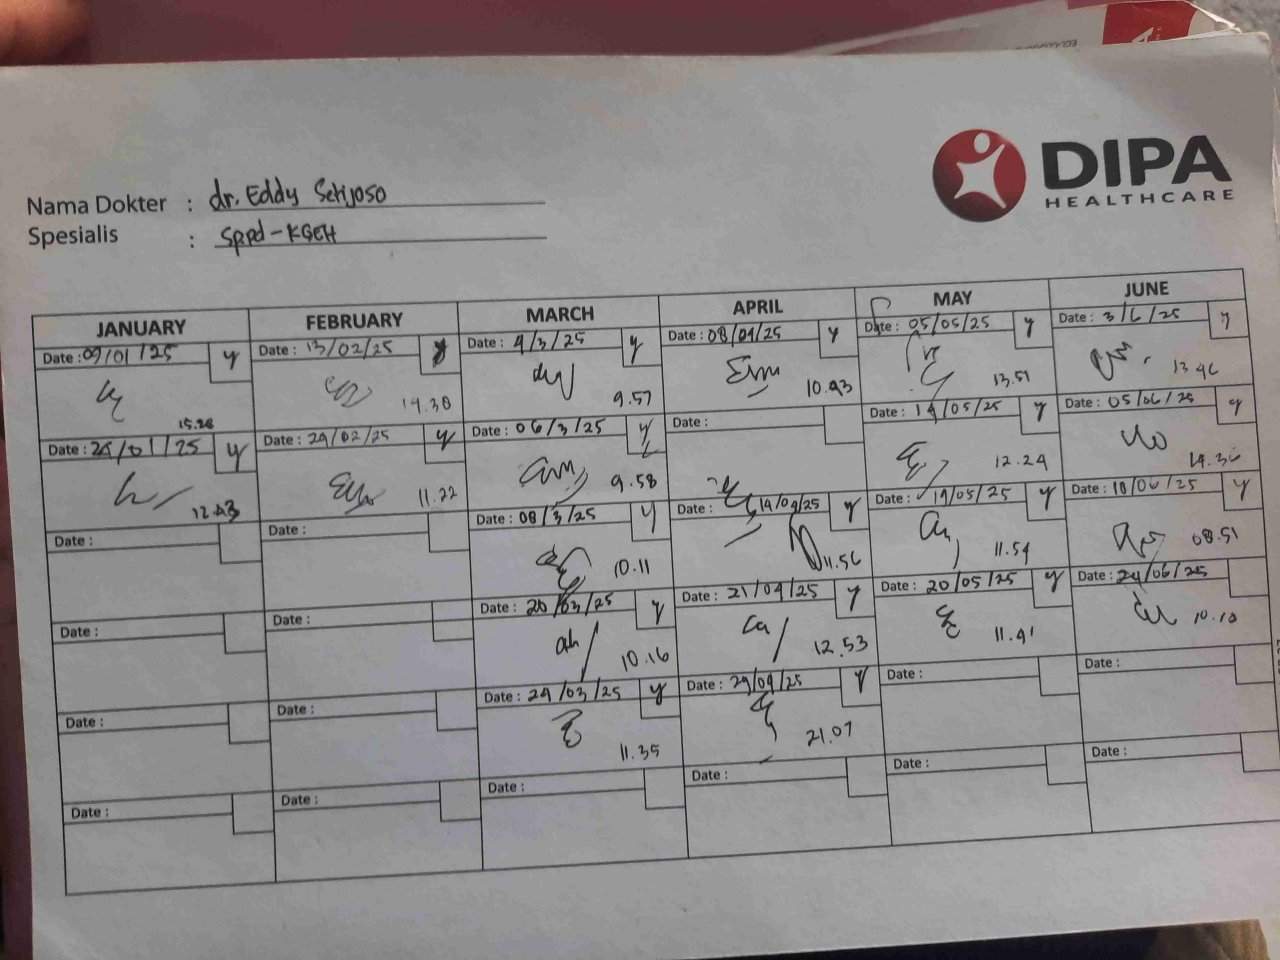 DIPA
HEALTHCARE
Nama Dokter : dr. Eddy Setijoso
Spesialis : Sppd-KGEH
JANUARY FEBRUARY MARCH APRIL MAY JUNE
Date : 09/01/25 y Date : 13/02/25 y Date : 4/3/25 y Date : 08/04/25 y Date : 05/05/25 y Date : 3/6/25 y
15.28 14.38 9.57 10.43 13.51 13.46
Date : 25/01/25 y Date : 24/02/25 y Date : 06/3/25 y Date : Date : 14/05/25 y Date : 05/06/25 y
12.43 11.22 9.58 12.24 14.36
Date : Date : Date : 08/3/25 y Date : 14/04/25 y Date : 19/05/25 y Date : 10/06/25 y
10.11 11.56 11.54 08.51
Date : Date : Date : 20/03/25 y Date : 21/04/25 y Date : 20/05/25 y Date : 24/06/25
10.16 12.53 11.41 10.10
Date : Date : Date : 24/03/25 y Date : 29/04/25 y Date : Date :
11.35 21.07
Date : Date : Date : Date : Date : Date :